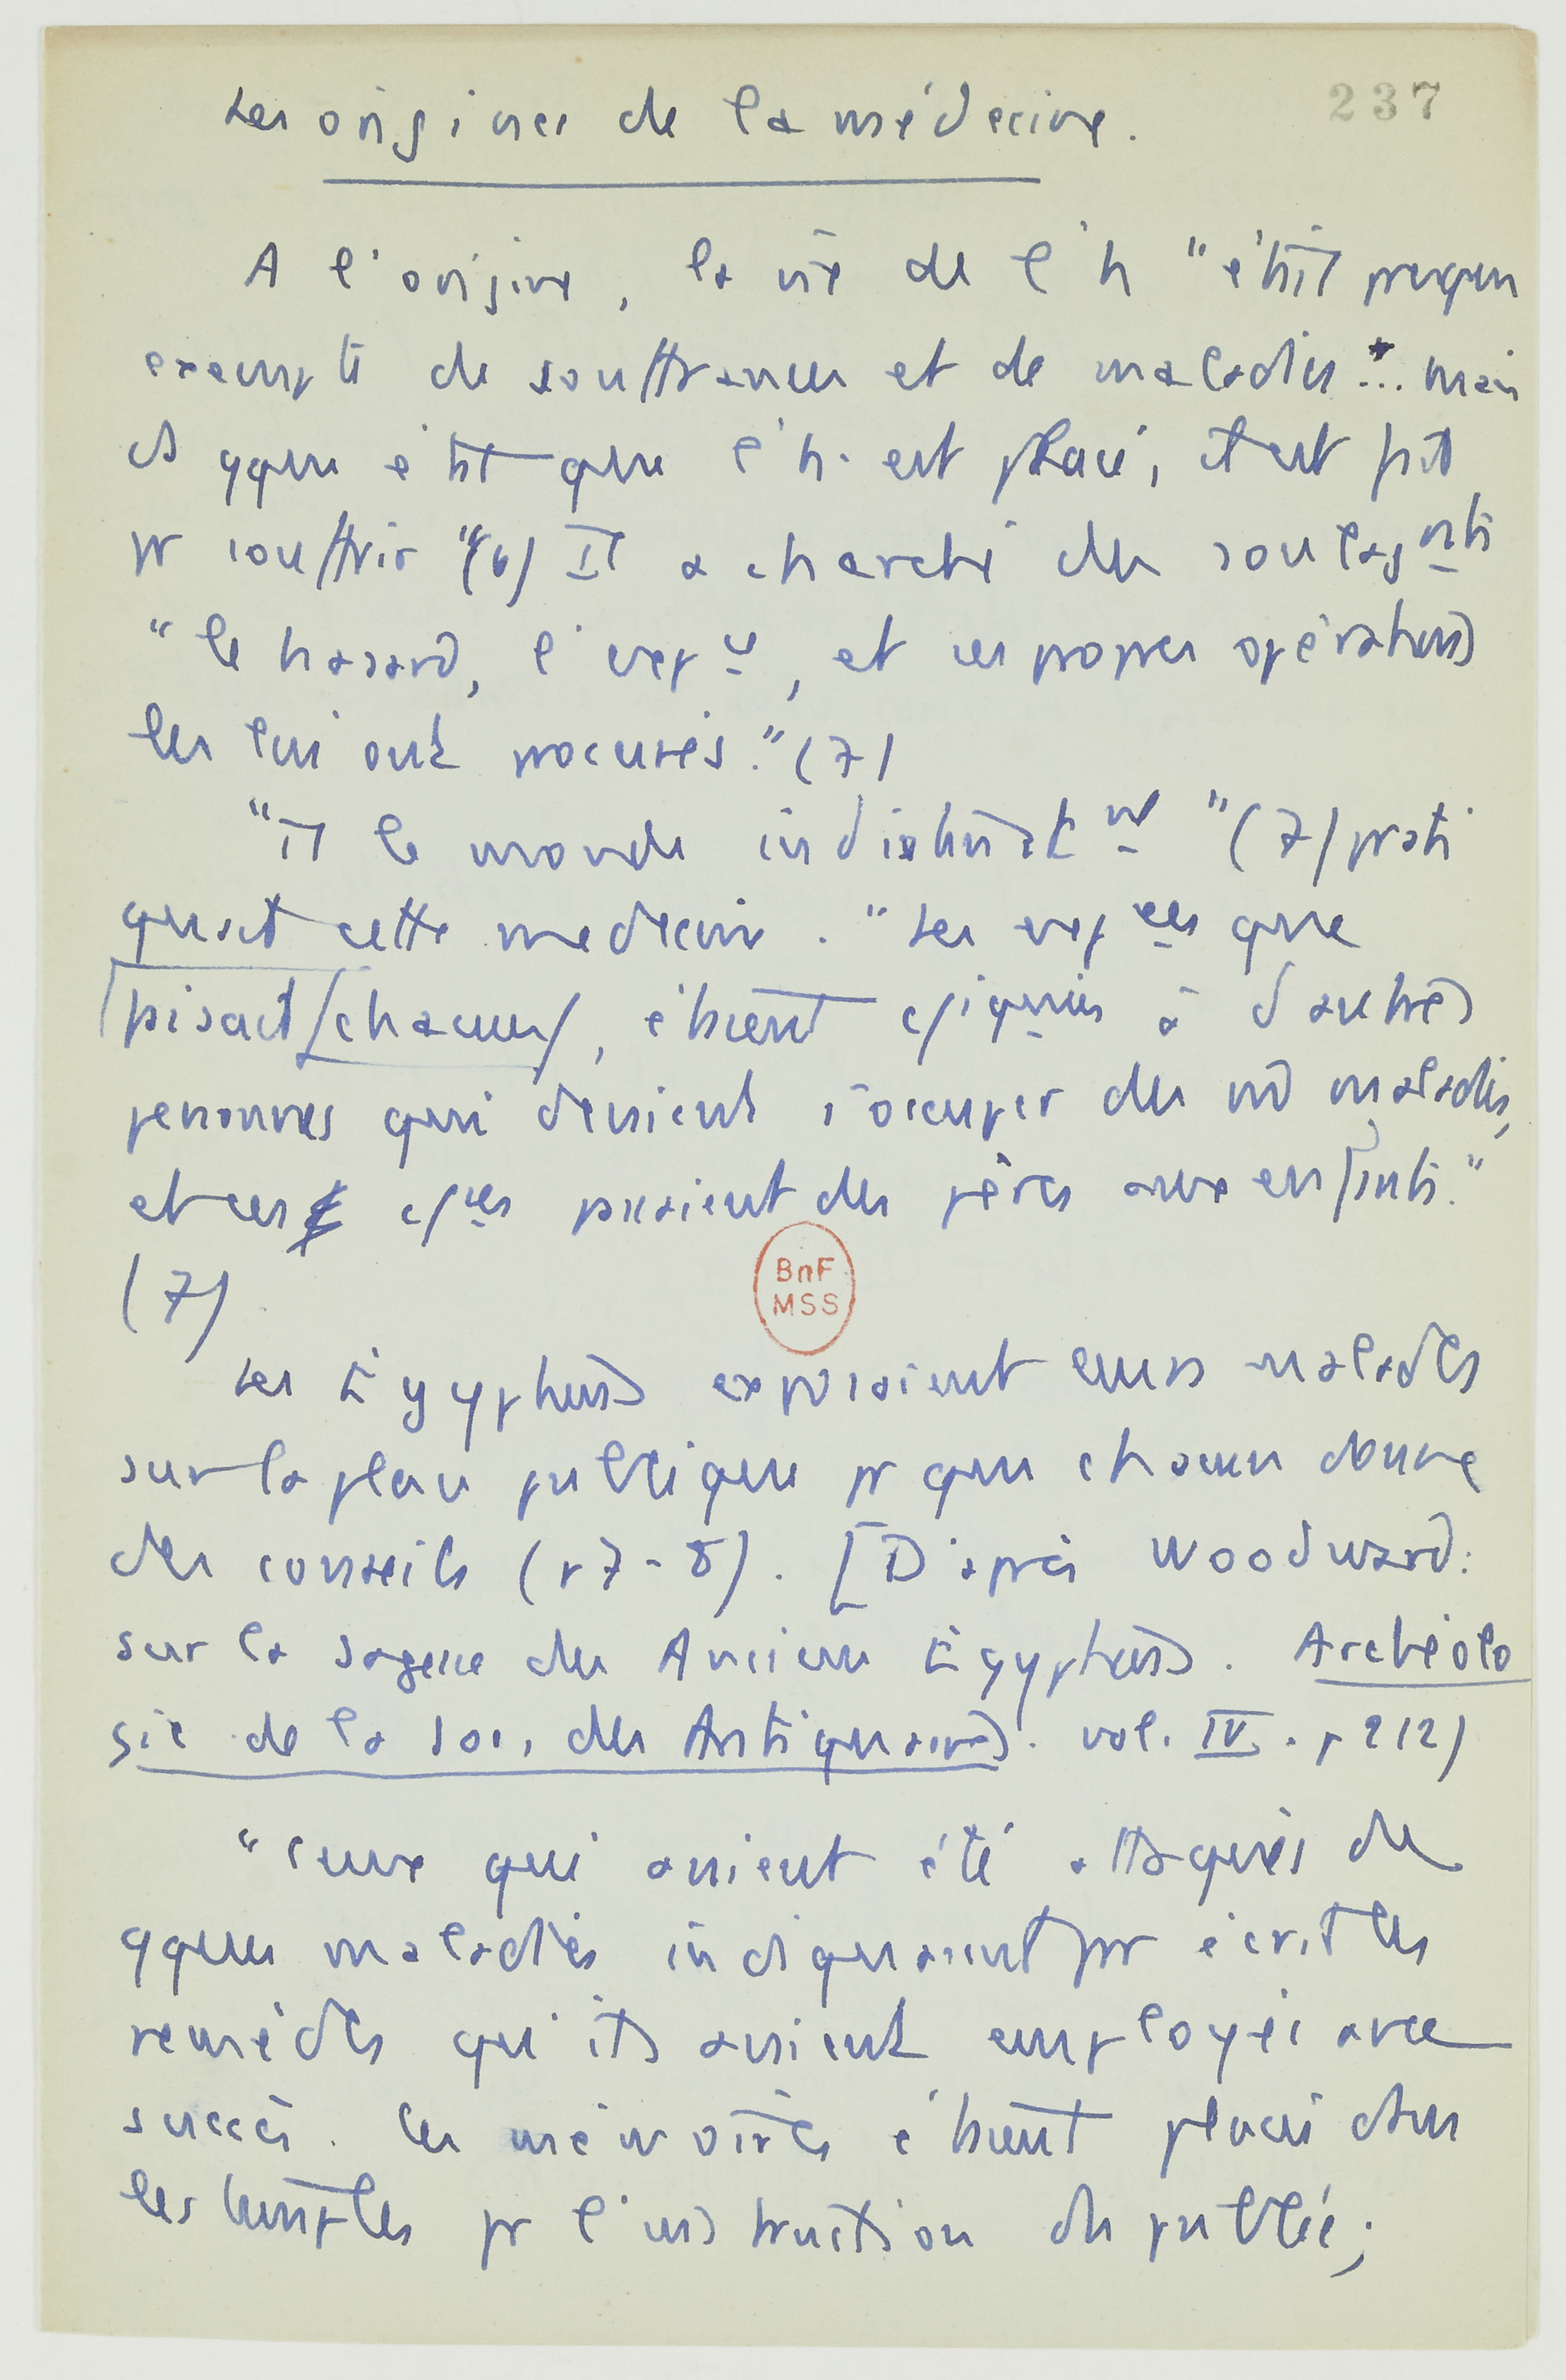 Les origines de la médecine.
237
A l'origine, la vie de l'h "était presque
exempte de souffrances et de maladies... mais
ds qque état que l'h. est placé, il est fait
pr souffrir" (6) Il a cherché des soulagmts
"le hasard, l'expce, et ses propres opérations
les lui ont procurés." (7)
"Tt le monde indistinctmt" (7) prati
quait cette médecine. "Les expces que
faisait [chacun], étaient cpiquées à d'autres
personnes qui devaient s'occuper des m̂ maladies,
et ces cpces passaient des pères aux enfants."
(7)
BnF
MSS
Les Egyptiens exposaient leurs malades
sur la place publique pr que chacun donne
des conseils (p 7-8). [D'après Woodward:
sur la sagesse des Anciens Egyptiens. Archéolo
gie de la Soc. des Antiquaires. vol. IV. p 212]
"Ceux qui avaient été attaqués de
qques maladies indiquaient par écrit les
remèdes qu'ils avaient employés avec
succès. Ces mémoires étaient placés dans
les temples pr l'instruction du public;